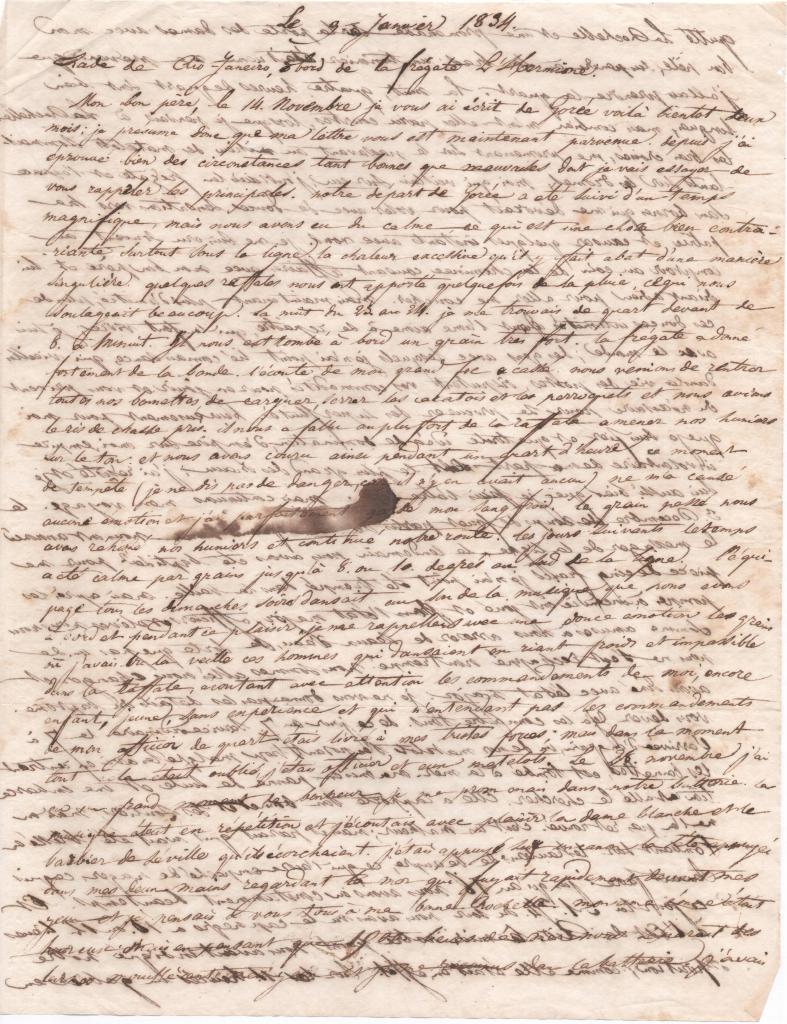 Le 3 Janvier 1834.
Rade de Rio Janeiro, à bord de la frégate L'Hermione.
Mon bon père, le 14 Novembre je vous ai écrit de Gorée voilà bientôt deux
mois; je presume donc que ma lettre vous est maintenant parvenue. depuis j'ai
eprouvé bien des circonstances tant bonnes que mauvaises dont je vais essayer de
vous rappeler les principales. notre depart de Gorée a été suivi d'un temps
magnifique, mais nous avons eu du calme ce qui est une chose bien contra-
riante surtout sous la ligne, la chaleur excessive qu'il y fait abat d'une manière
singulière. quelques raffales nous ont apporté quelquefois de la pluie, ce qui nous
soulageait beaucoup. la nuit du 23 au 24. je me trouvais de quart devant de
8. à Minuit. Il nous est tombé à bord un grain très fort. la fregate a donné
fortement de la bande. l'écoute de mon grand foc a cassé. nous venions de rentrer
toutes nos bonnettes de carguer, serrer les cacatois et les perroquets et nous avions
le ris de chasse pris. il nous a fallu au plus fort de la raffale amener nos huniers
sur le ton. et nous avons couru ainsi pendant un quart d'heure. ce moment
de tempête (je ne dis pas de danger car il n'y en avait aucun) ne m'a causé
aucune emotion et j'ai parfaitement mon sang froid. le grain passé nous
avons nos huniers et continué notre route. les jours suivants le temps
a été calme par grains jusqu'à 8. ou 10. degrés au Sud de la ligne. l'équi-
page tous les dimanches soirs dansait au son de la musique que nous avons
à bord et pendant ce plaisir je me rappellais avec une douce emotion les grains
où j'avais vu la veille ces hommes qui dansaient en riant froids et impassible
dans la raffale, ecoutant avec attention les commandements de moi, encore
enfant, jeune, sans experience et qui n'entendant pas les commandements
de mon officier de quart etais livré à mes seules forces; mais dans le moment
tout cela etait oublié, j'etais officier et eux matelots. Le 28. novembre j'ai
eu un grand moment de bonheur. je me promenais dans notre batterie. la
musique etait en repétition et j'écoutais avec plaisir la dame blanche et le
barbier de Seville qu'ils écorchaient. j'etais appuyé sur un canon la tête appuyée
dans mes deux mains regardant la mer qui fuyait rapidement devant mes
yeux et je pensais à vous tous à ma bonne Rochelle mon ame etait
heureuse en pensant que
j'avais